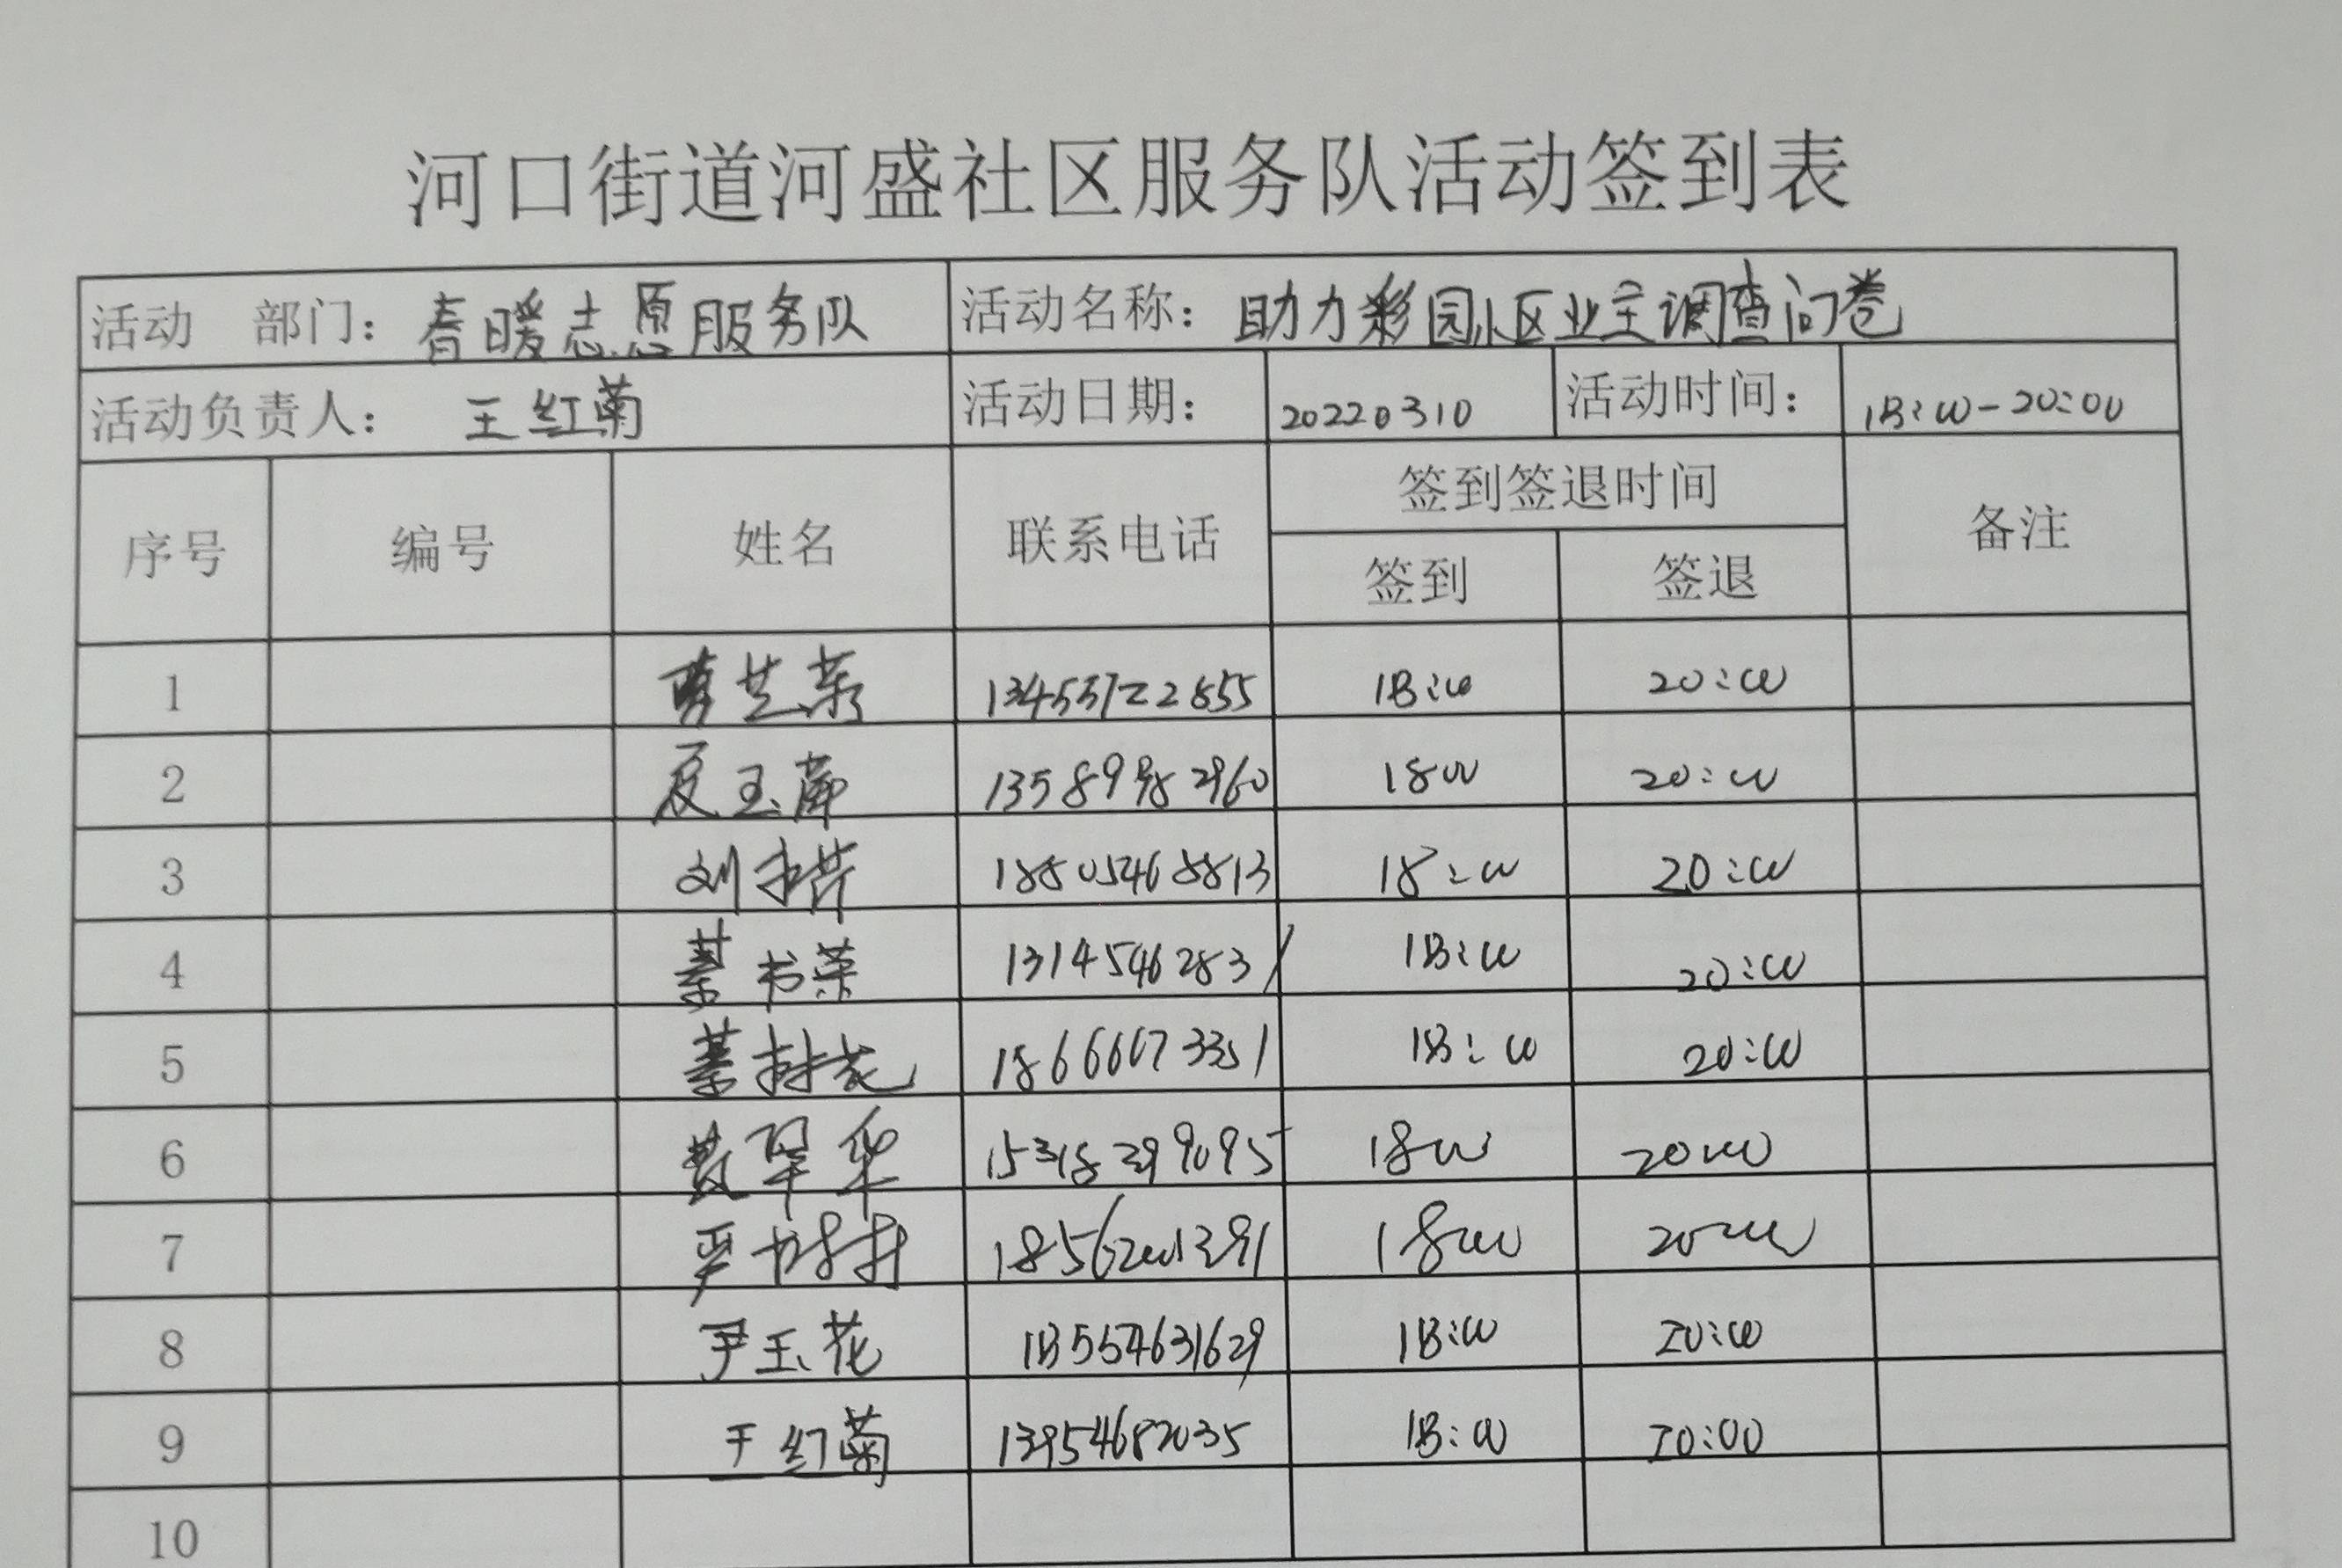 河口街道河盛社区服务队活动签到表
活动 部门: 春暖志愿服务队 活动名称: 助力彩园小区业主调查问卷
活动负责人: 王红菊 活动日期: 20220310 活动时间: 18:00-20:00
序号 编号 姓名 联系电话 签到签退时间 备注
签到 签退
1 芝 18:00 20:00
2 夏玉 13589982960 1800 20:00
3 刘 芹 18805468813 18:00 20:00
4 綦书荣 13145462831 18:00 20:00
5 綦 花 18666673351 18:00 20:00
6 翠华 1800 2000
7 严 18562001391 1800 2000
8 尹玉花 18554631629 18:00 20:00
9 王红菊 13954682035 18:00 20:00
10